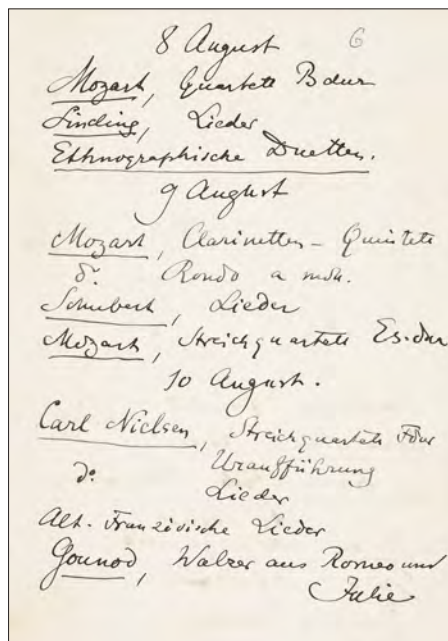 8 August 6
Mozart, Quartett B dur
Sinding, Lieder
Ethnographische Duetten.
9 August
Mozart, Clarinetten - Quintett
do. Rondo a moll.
Schubert, Lieder
Mozart, Streichquartett Es-dur
10 August.
Carl Nielsen, Streichquartett Fdur
Uraufführung
do. Lieder
Alt-Französische Lieder
Gounod, Walzer aus Romeo und
Julie